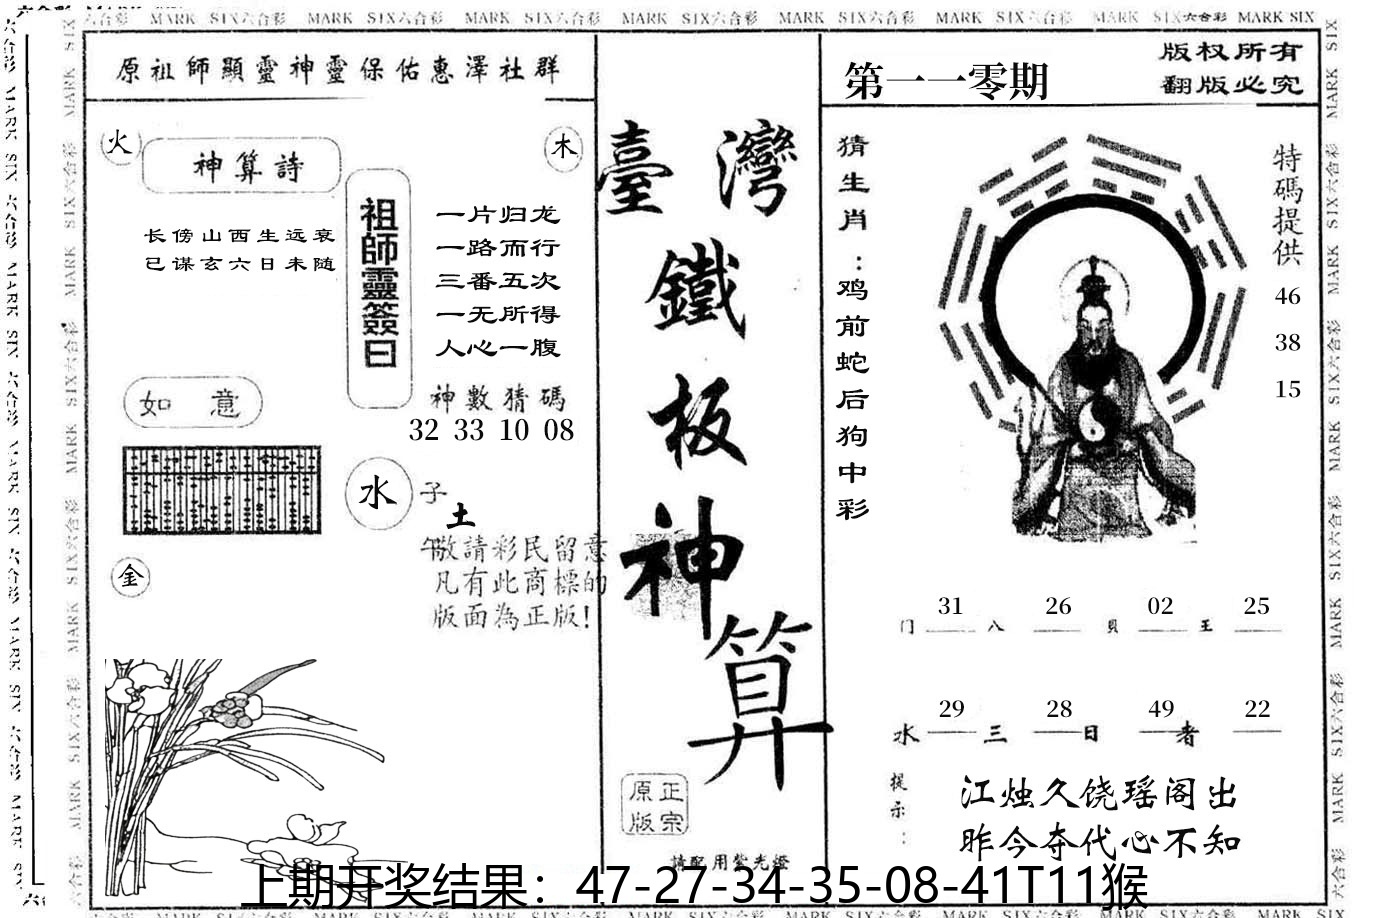 MARK SIX六合彩 MARK SIX六合彩 MARK SIX六合彩 MARK SIX六合彩 MARK SIX六合彩 MARK SIX六合彩 MARK SIX六合彩 MARK SIX
原祖師顯靈神靈保佑惠澤社群
火
神算詩
木
长傍山西生远哀
已谋玄六日未随
祖師靈簽曰
一片归龙
一路而行
三番五次
一无所得
人心一腹
神數猜碼
32 33 10 08
如意
水
子
土
午
金
敬請彩民留意
凡有此商標的
版面為正版!
臺灣
鐵
板
神
算
正宗
原版
請配用紫光燈
第一一零期
版权所有
翻版必究
猜生肖:鸡前蛇后狗中彩
特碼提供
46
38
15
31 26 02 25
门 八 貝 王
29 28 49 22
水 三 日 者
提示:
江烛久饶瑶阁出
昨今夺代心不知
上期开奖结果：47-27-34-35-08-41T11猴